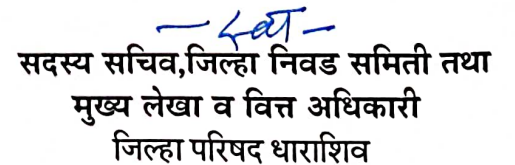 सदस्य सचिव,जिल्हा निवड समिती तथा
मुख्य लेखा व वित्त अधिकारी
जिल्हा परिषद धाराशिव